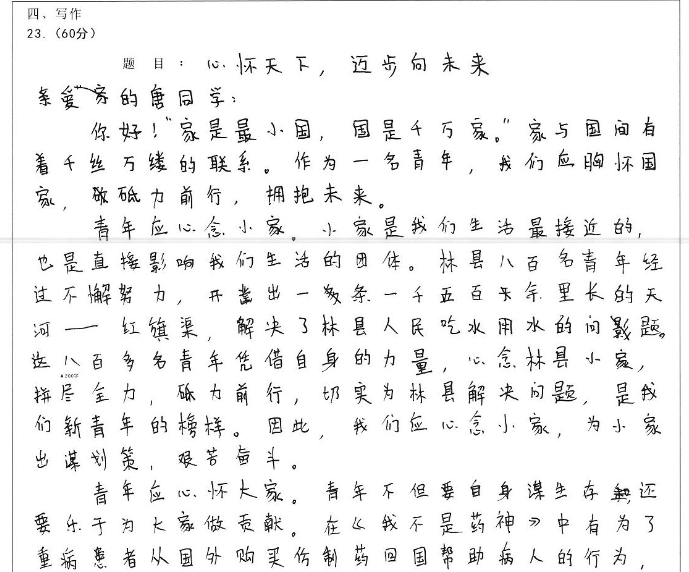 四、写作
23.（60分）
题 目：心怀天下，迈步向未来
亲爱的唐同学：
你好！“家是最小国，国是千万家。”家与国间有
着千丝万缕的联系。作为一名青年，我们应胸怀国
家，砥砺前行，拥抱未来。
青年应心念小家。小家是我们生活最接近的，
也是直接影响我们生活的团体。林县八百名青年经
过不懈努力，开凿出一条一千五百余里长的天
河——红旗渠，解决了林县人民吃水用水的问题。
这八百多名青年凭借自身的力量，心念林县小家，
拼尽全力，砥力前行，切实为林县解决问题，是我
们新青年的榜样。因此，我们应心念小家，为小家
出谋划策，艰苦奋斗。
青年应心怀大家。青年不但要自身谋生存，还
要乐于为大家做贡献。在《我不是药神》中有为了
重病患者从国外购买仿制药回国帮助病人的行为，